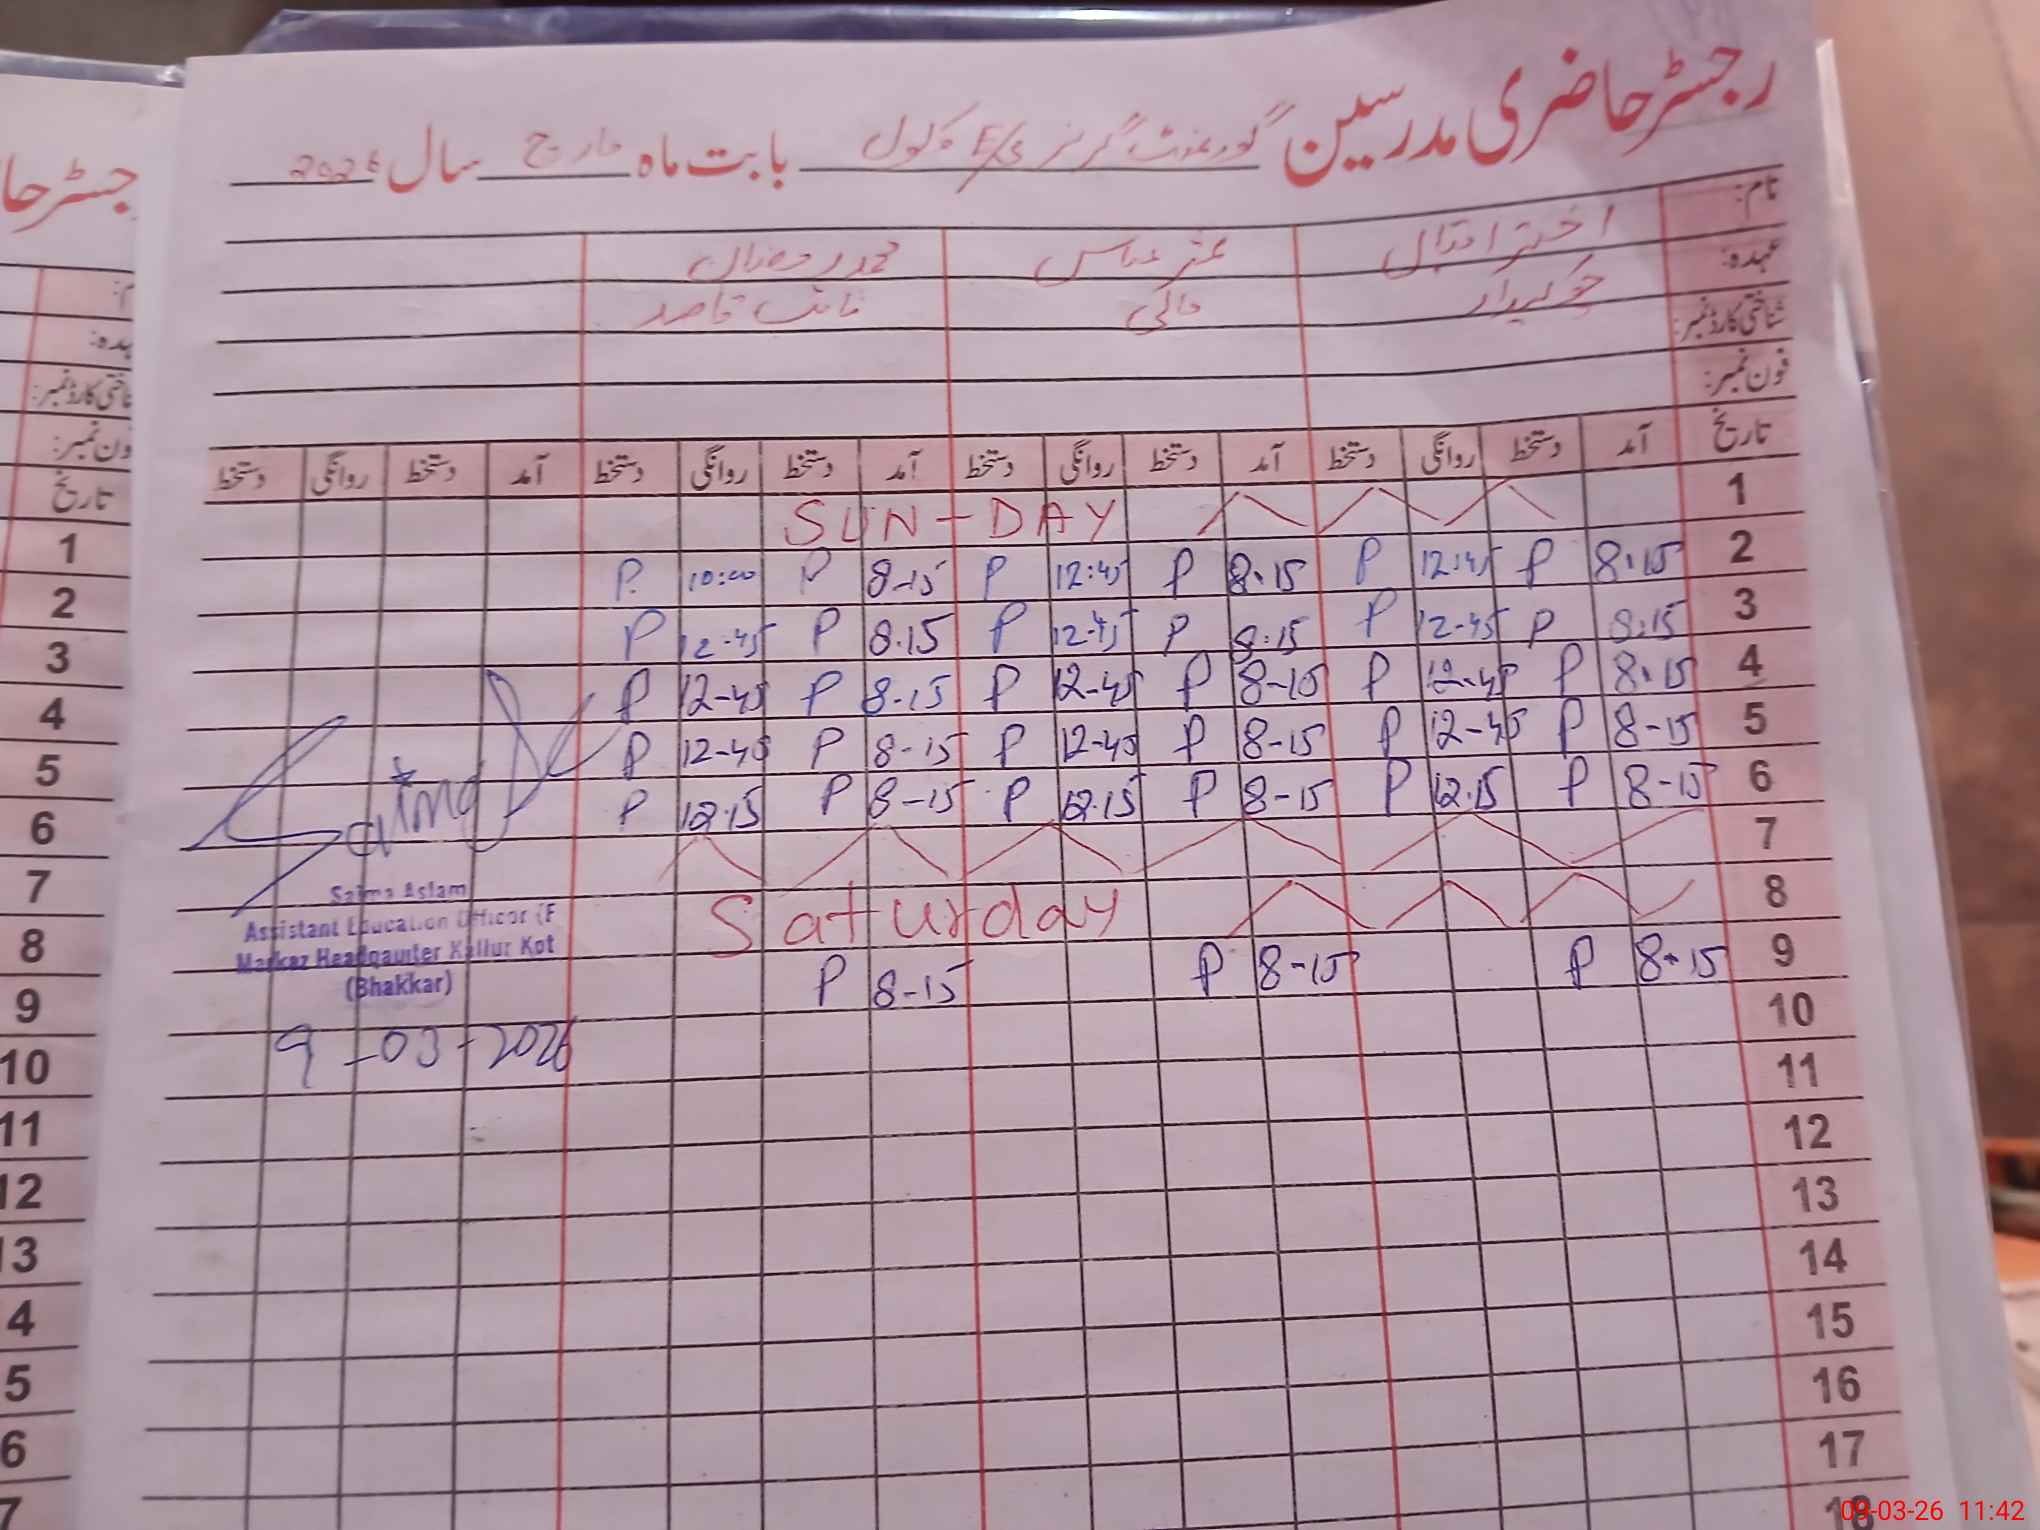 رجسٹر حاضری مدرسین گورنمنٹ گرلز E/S کلول بابت ماہ مارچ سال 2026
نام: اختر اقبال عنتر عباس محمد رمضان
عہدہ: چوکیدار مالی نائب قاصد
شناختی کارڈ نمبر:
فون نمبر:
تاریخ آمد دستخط روانگی دستخط آمد دستخط روانگی دستخط آمد دستخط روانگی دستخط آمد دستخط روانگی دستخط
SUN-DAY 1
P. 10:00 P 8-15 P 12:45 P 8.15 P 12:45 P 8.15 2
P 12-45 P 8.15 P 12-45 P 8:15 P 12-45 P 8:15 3
P 12-45 P 8-15 P 12-45 P 8-15 P 12-45 P 8.15 4
P 12-45 P 8-15 P 12-45 P 8-15 P 12-45 P 8-15 5
P 12.15 P 8-15 P 12.15 P 8-15 P 12.15 P 8-15 6
7
Saturday 8
P 8-15 P 8-15 P 8-15 9
Saima Aslam
Assistant Education Officer (F
Markaz Headqauter Kallur Kot
(Bhakkar)
9-03-2026
10
11
12
13
14
15
16
17
18
جسٹر حا
م:
ہدہ:
ناختی کارڈ نمبر:
ون نمبر:
تاریخ
1
2
3
4
5
6
7
8
9
10
11
12
13
4
5
6
7
09-03-26 11:42